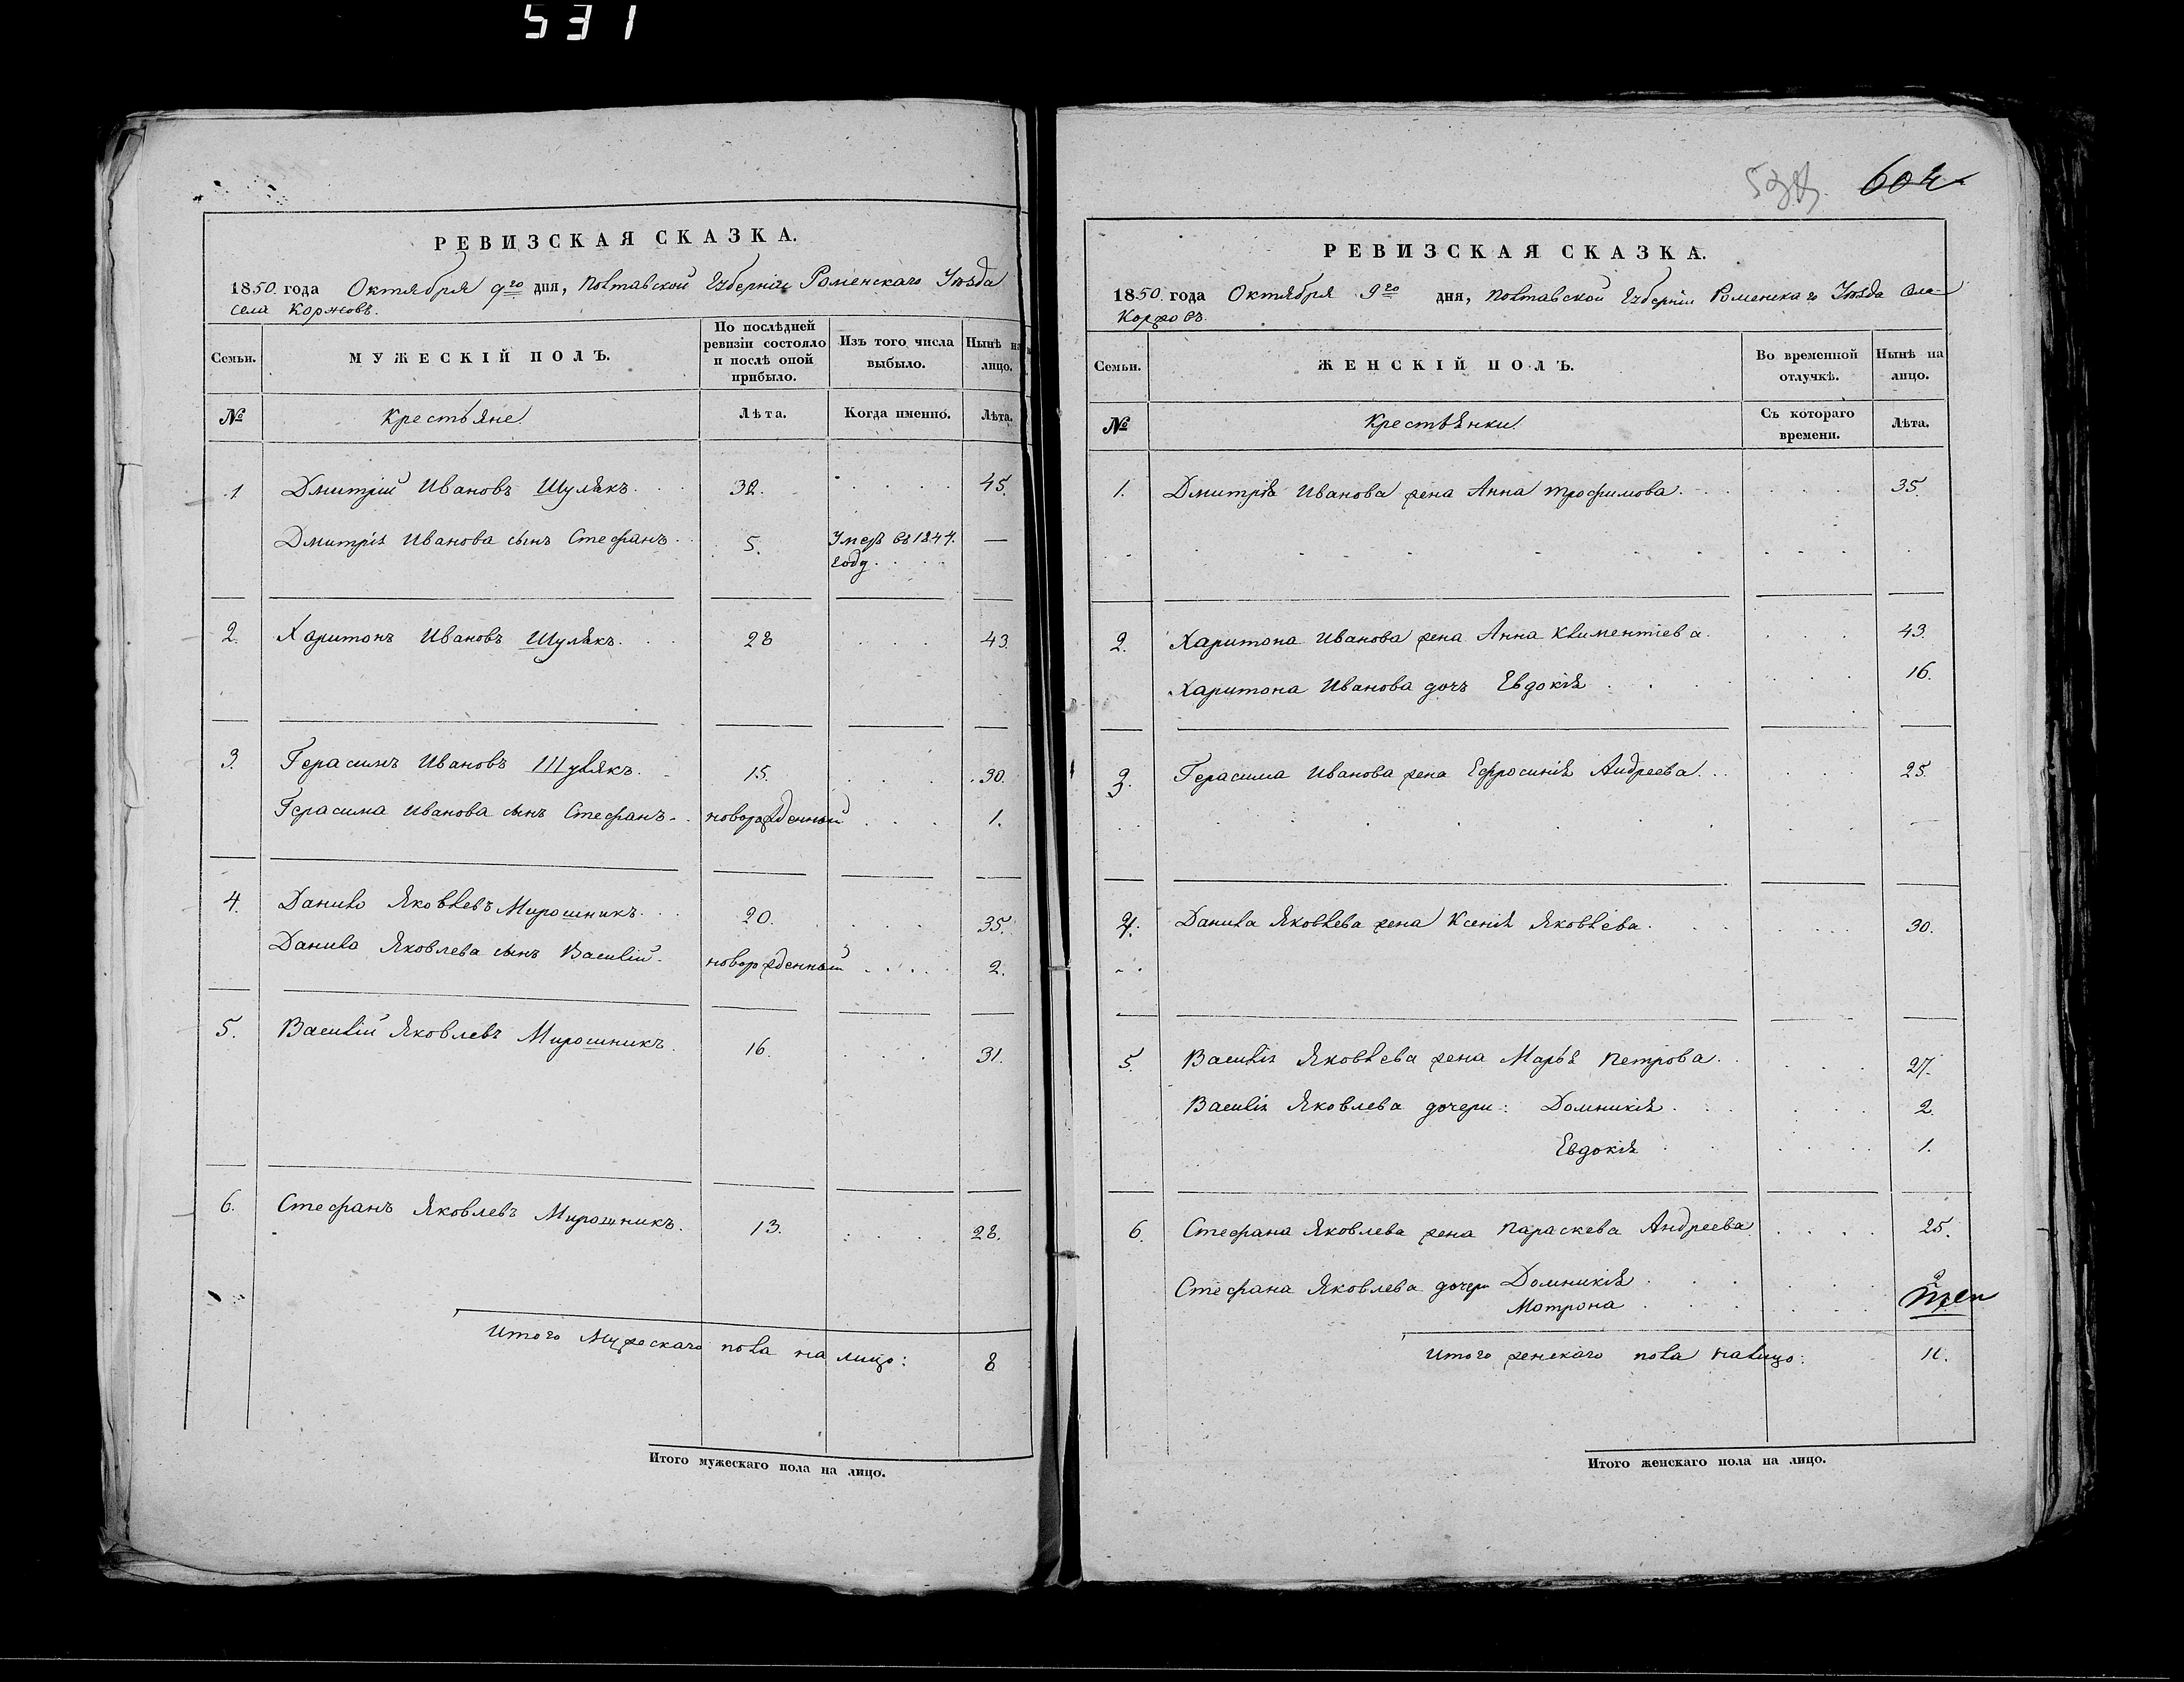 531
РЕВИЗСКАЯ СКАЗКА.
1850 года Октября 9го дня, Полтавской Губерніи Роменскаго Уѣзда
села Коржовъ.
Семьи. МУЖЕСКІЙ ПОЛЪ. По послѣдней ревизіи состояло и послѣ оной прибыло. Изъ того числа выбыло. Нынѣ на лицо.
№ Крестьяне Лѣта. Когда именно. Лѣта.
1 Дмитрій Ивановъ Шулякъ 32. 45.
Дмитрія Иванова сынъ Стефанъ 5. Умеръ въ 1844. —
году
2. Харитонъ Ивановъ Шулякъ 28 43.
3. Герасимъ Ивановъ Шулякъ 15. 30.
Герасима Иванова сынъ Стефанъ новорожденный 1.
4. Данило Яковлевъ Мирошникъ 20. 35.
Данила Яковлева сынъ Василій новорожденный 2.
5. Василій Яковлевъ Мирошникъ 16. 31.
6. Стефанъ Яковлевъ Мирошникъ. 13. 28.
Итого Мужескаго пола на лицо: 8
Итого мужескаго пола на лицо.
604
РЕВИЗСКАЯ СКАЗКА.
1850 года Октября 9го дня, Полтавской Губерніи Роменскаго Уѣзда села
Коржовъ.
Семьи. ЖЕНСКІЙ ПОЛЪ. Во временной отлучкѣ. Нынѣ на лицо.
№ Крестьянки Съ котораго времени. Лѣта.
1. Дмитрія Иванова жена Анна Трофимова 35.
2. Харитона Иванова жена Анна Климентіева 43.
Харитона Иванова дочь Евдокія 16.
3. Герасима Иванова жена Ефросинія Андреева 25.
4. Данила Яковлева жена Ксенія Яковлева 30.
5. Василія Яковлева жена Марья Петрова 27.
Василія Яковлева дочери: Домникія 2.
Евдокія 1.
6. Стефана Яковлева жена Параскева Андреева 25.
Стефана Яковлева дочери Домникія 2
Мотрона
Итого женскаго пола налицо: 11.
Итого женскаго пола на лицо.